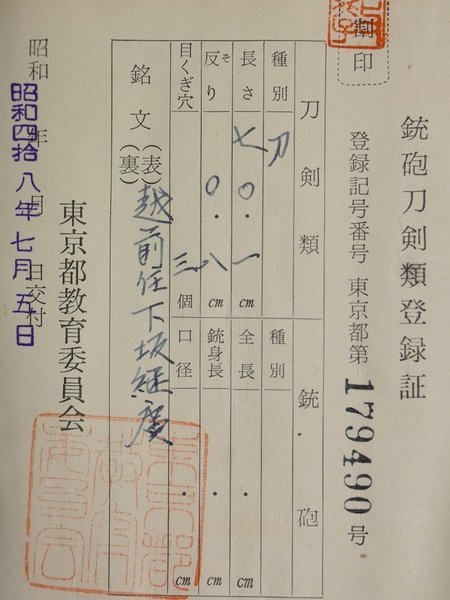 銃砲刀剣類登録証
割印
登録記号番号 東京都第179490号
刀剣類 銃砲
種別 刀 種別
長さ 七〇.一cm 全長 .cm
反り 〇.八cm 銃身長 .cm
目くぎ穴 三個 口径 .cm
銘文 (表) 越前住下坂継廣
(裏)
東京都教育委員会
昭和 年 月 日交付
昭和四拾八年七月五日